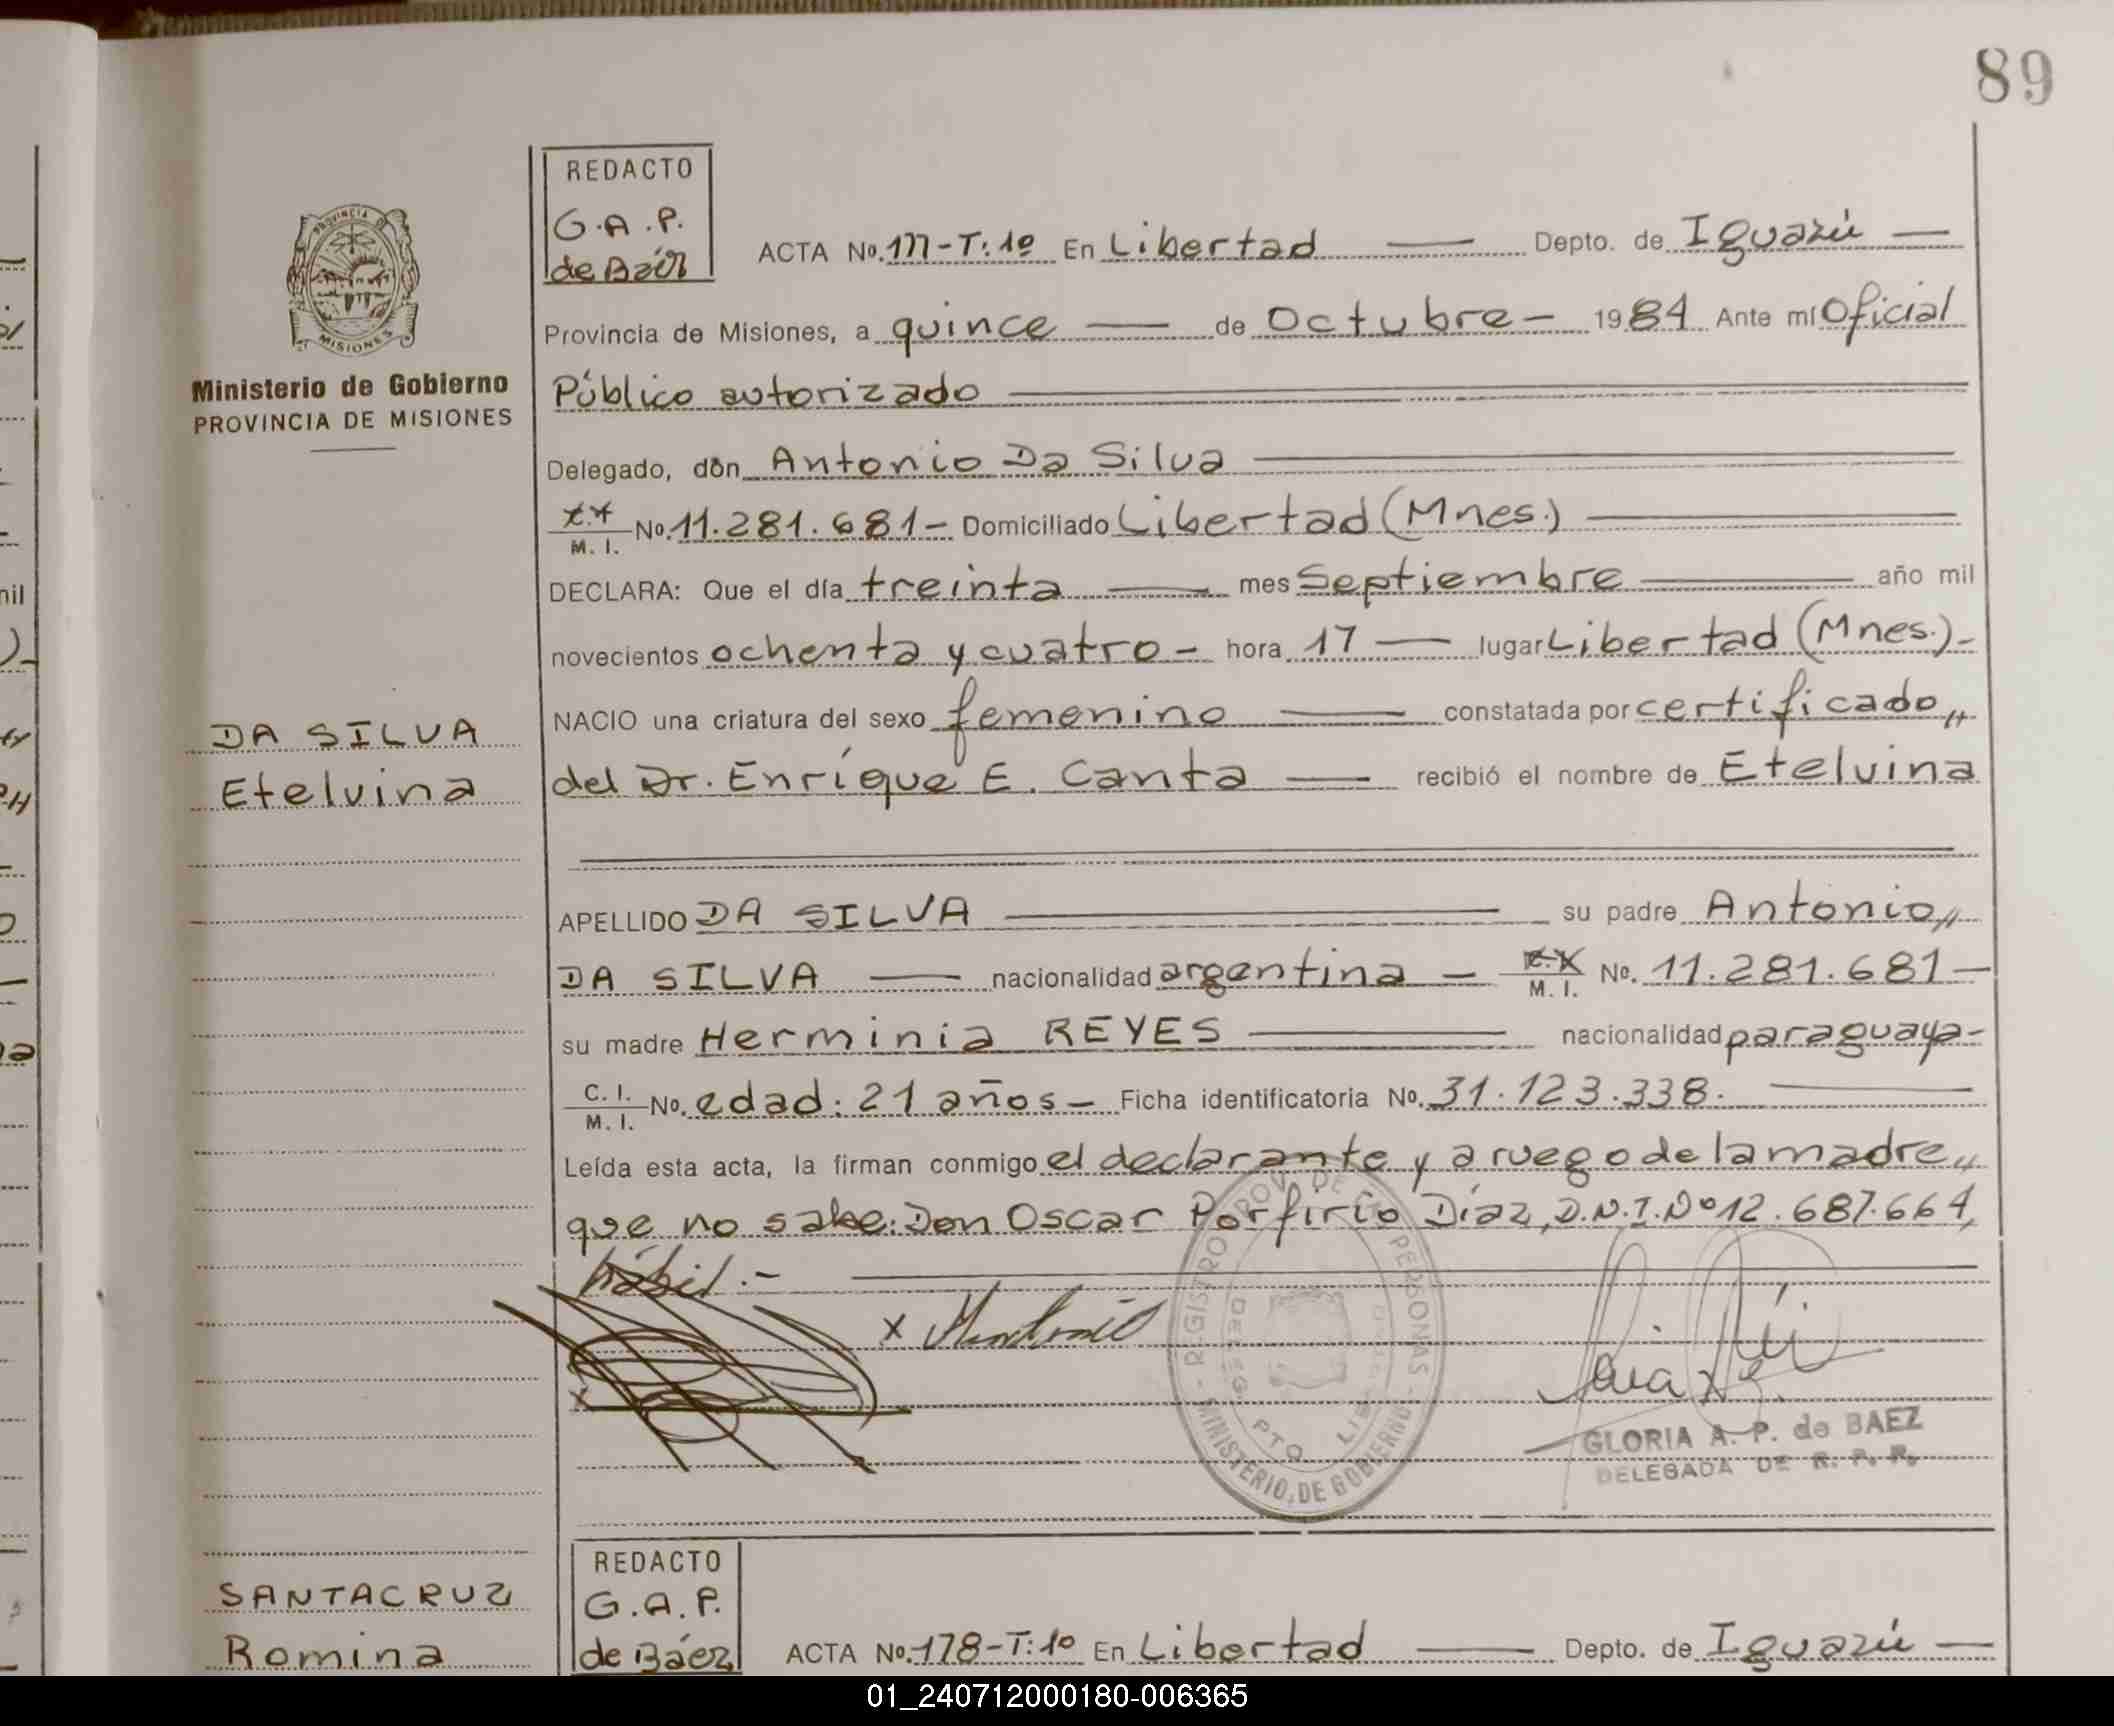 89
REDACTO
G.A.P.
de Báez
ACTA No. 177-T:1º En Libertad Depto. de Iguazú
Provincia de Misiones, a quince de Octubre - 1984 Ante mí Oficial
Público autorizado
Delegado, don Antonio Da Silva
M. I. No. 11.281.681- Domiciliado Libertad (Mnes.)
DECLARA: Que el día treinta mes Septiembre año mil
novecientos ochenta y cuatro - hora 17 lugar Libertad (Mnes.)-
NACIO una criatura del sexo femenino constatada por certificado,,
del Dr. Enríque E. Canta recibió el nombre de Etelvina
APELLIDO DA SILVA su padre Antonio,,
DA SILVA nacionalidad argentina - M. I. No. 11.281.681-
su madre Herminia REYES nacionalidad paraguaya-
C. I.
M. I. No. edad: 21 años - Ficha identificatoria No. 31.123.338.
Leída esta acta, la firman conmigo el declarante y a ruego de la madre,,
que no sabe: Don Oscar Porfirio Díaz, D.N.I. Nº 12.687.664,
hábil.-
x
x
REGISTRO PROV. DE LAS PERSONAS
MINISTERIO DE GOBIERNO
PTO
GLORIA A. P. de BAEZ
DELEGADA DE R. P. P.
PROVINCIA DE
MISIONES
Ministerio de Gobierno
PROVINCIA DE MISIONES
DA SILVA
Etelvina
SANTACRUZ
Romina
REDACTO
G.A.P.
de Báez
ACTA No. 178-T:1º En Libertad Depto. de Iguazú
01_240712000180-006365